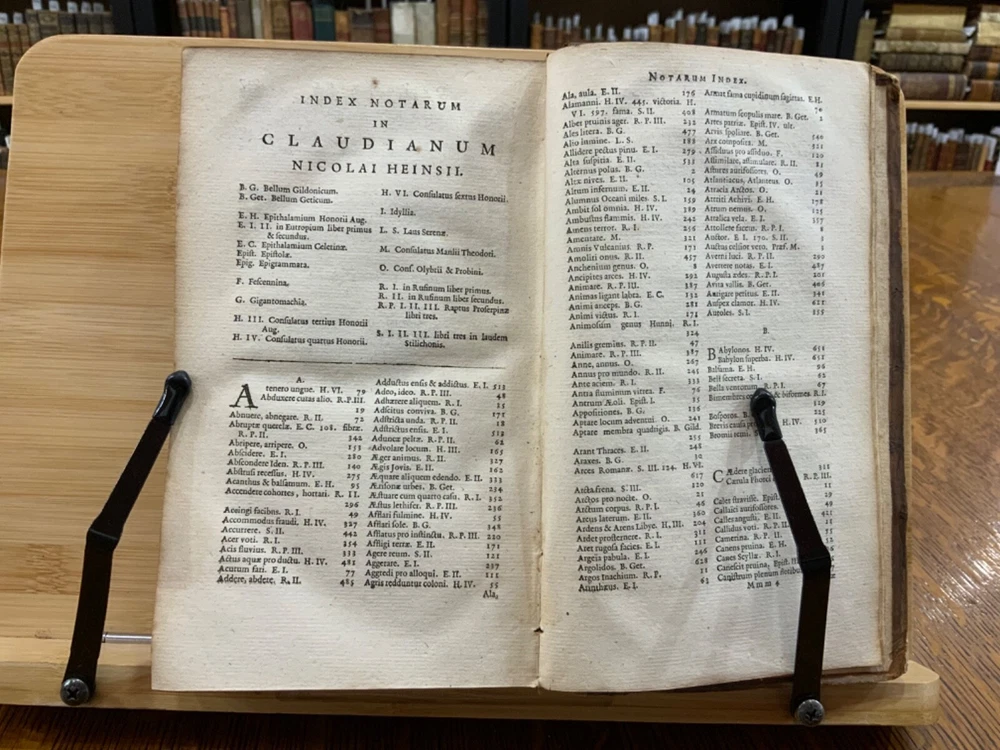 INDEX NOTARUM
IN
CLAUDIANUM
NICOLAI HEINSII.
B. G. Bellum Gildonicum.
B. Get. Bellum Geticum.
E. H. Epithalamium Honorii Aug.
E. I. II. in Eutropium liber primus
& secundus.
E. C. Epithalamium Celetinæ.
Epist. Epistolæ.
Epig. Epigrammata.
F. Fescennina.
G. Gigantomachia.
H. III. Consulatus tertius Honorii
Aug.
H. IV. Consulatus quartus Honorii.
H. VI. Consulatus sextus Honorii.
I. Idyllia.
L. S. Laus Serenæ.
M. Consulatus Manlii Theodori.
O. Cons. Olybrii & Probini.
R. I. in Rufinum liber primus.
R. II. in Rufinum liber secundus.
R. P. I. II. III. Raptus Proserpinæ
libri tres.
S. I. II. III. libri tres in laudem
Stilichonis.
A.
A tenero ungue. H. VI. 79
Abduxere cutas alio. R.P.III.
19
Abnuere, abnegare. R. II. 72
Abruptæ querelæ. E. C. 108. fibræ.
R. P. II. 342
Abripere, arripere. O. 153
Abscidere. E. I. 280
Abscondere Iden. R. P. III. 140
Abstrusi recessus. H. IV. 275
Acanthus & balsatnum. E. H. 95
Accendere cohortes, hortari. R. II.
296
Accingi facibus. R. I. 49
Accommodus fraudi. H. IV. 327
Accurrere. S. II. 442
Acer voti. R. I. 254
Acis fluvius. R. P. III. 333
Actus aquæ pro ductu. H. IV. 482
Acutum fari. E. I. 77
Addere, abdere. R. II. 485
Adductus ensis & addictus. E. I. 513
Adeo, ideo. R. P. III. 48
Adhærere aliquem. R. I. 25
Adscitus conviva. B. G. 171
Adstricta unda. R. P. II. 18
Adstrictus ensis. E. I. 513
Aduncæ peltæ. R. P. II. 62
Advolare locum. H. III. 165
Æger animus. R. II. 327
Ægis Jovis. E. II. 162
Æquare aliquem edendo. E. II. 333
Ærisonæ urbes. B. Get. 234
Æstuare cum quarto casu. R. I. 352
Æstus lethifer. R. P. III. 236
Afflari fulmine. H. IV. 55
Afflari sole. B. G. 342
Afflatus pro instinctu. R. P. III. 220
Affligi terræ. E. II. 171
Agere reum. S. II. 121
Aggerare. E. I. 237
Aggredi pro alloqui. E. II. 111
Agris redduntur coloni. H. IV. 55
Ala,
NOTARUM INDEX.
Ala, aula. E. II. 176
Alamanni. H. IV. 445. victoria. H.
VI. 597. fama. S. II. 408
Albet pruinis ager. R. P. III. 232
Ales litera. B. G. 477
Alio lumine. L. S. 188
Allidere pectus pinu. E. I. 279
Alta suspitia. E. II. 535
Alternus polus. B. G. 2
Alex nives. E. II. 105
Altum infernum. E. II. 24
Alumnus Oceani miles. S. I. 159
Ambit sol omnia. H. IV. 189
Ambustus flammis. H. IV. 242
Amens terror. R. I. 256
Amentare. M. 321
Amnis Vulcanius. R. P. 171
Amoliti onus. R. II. 457
Anchenium genus. O. 8
Ancipites arces. H. IV. 292
Animare. R. P. III. 387
Animas ligant labra. E. C. 132
Animi anceps. B. G. 5
Animi victus. R. I. 171
Animosum genus Hunni. R. I.
324
Anilis gremius. R. P. II. 47
Animare. R. P. III. 387
Anne, annus. O. 267
Annus pro mundo. R. II. 245
Ante aciem. R. I. 333
Antra fluminum vitrea. F. 76
Antrum Æoli. Epist. I. 55
Appositiones. B. G. 116
Aptare locum adventui. O. 241
Aptare membra quadrigis. B. Gild.
255
Arant Thraces. E. II. 245
Araxes. B. G. 32
Arces Romanæ. S. III. 124. H. VI.
617
Arcta frena. S. III. 220
Arctos pro nocte. O. 22
Arctum corpus. R. P. I. 46
Arcus laterum. E. II. 260
Ardens & Arens Libye. H. III. 204
Ardet prosternere. R. I. 311
Aret rugosa facies. E. I. 111
Argeia pabula. E. I. 246
Argolidos. B. Get. 628
Argos Inachium. R. P. 31
Arinthæus. E. I. 63
Armat fama cupidinum sagittas. E.H.
74
Armatum scopulis mare. B. Get. 2
Artes patriæ. Epist. IV. ult.
Arvis spoliare. B. Get. 540
Arx composita. M.
Assiduus pro assiduo. F. 120
Assimilare, assimulare. R. II. 83
Astures aurifossores. O. 49
Atlantiacus, Atlanteus. O. 35
Atracia Arctos. O. 21
Attriti Athivi. E. H. 178
Atrum nemus. O. 125
Attalica vela. E. I. 357
Attollere faciem. R. P. I. 8
Auctor. E I. 170. S. II.
Auctus celsior vero. Præf. M. 1
Averni luci. R. P. II. 290
Avenere notas. E. I. 487
Augusta ædes. R. P. I. 201
Avita vallis. B. Get. 406
Aurigare peritus. E. II. 341
Auspex clamor. H. IV. 612
Autoles. S. I. 355
B.
Babylonos. H. IV. 651
Babylon superba. H. IV. 652
Balsama. E. H. 96
Belli secreta. S. I. 62
Bella ventorum. R. P. I. 67
Bimembres & biformes R. I.
329
Bosporos. 225
Brevis causa H. IV. 510
Bromii 365
C.
Cædere glaciem 325
Cærula Phorci R. P. III.
Cales stravisse. Epist. 29
Callaici aurifossores. 49
Calles angusti. E. II.
Callidus voti. R. P. II.
Camerina. R. P. II.
Canens pruina. E. H.
Canes Scyllæ. R. I.
Canescit pruina, Epist.
Canistrum plenum floribus
Mmm 4